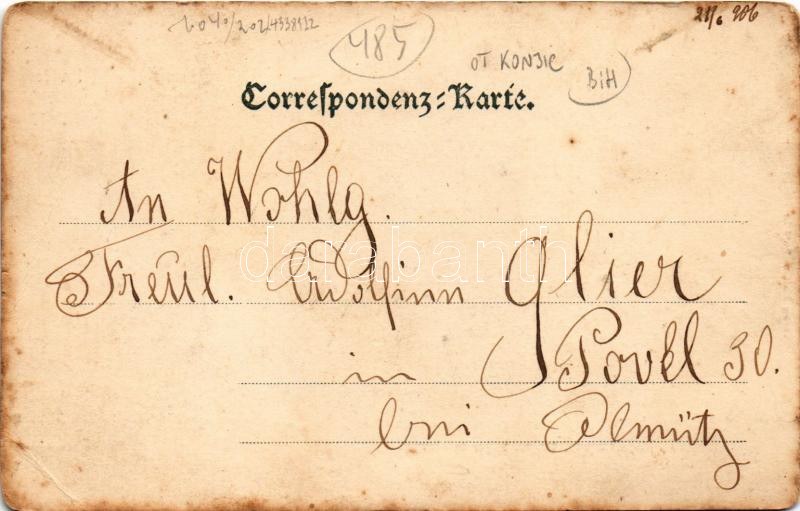 485
21/6 906
OT KONJIC
BiH
Correspondenz-Karte.
An Wohlg.
Freul. Adolfinn Glier
in Povel 30.
bei Olmütz
darabanth